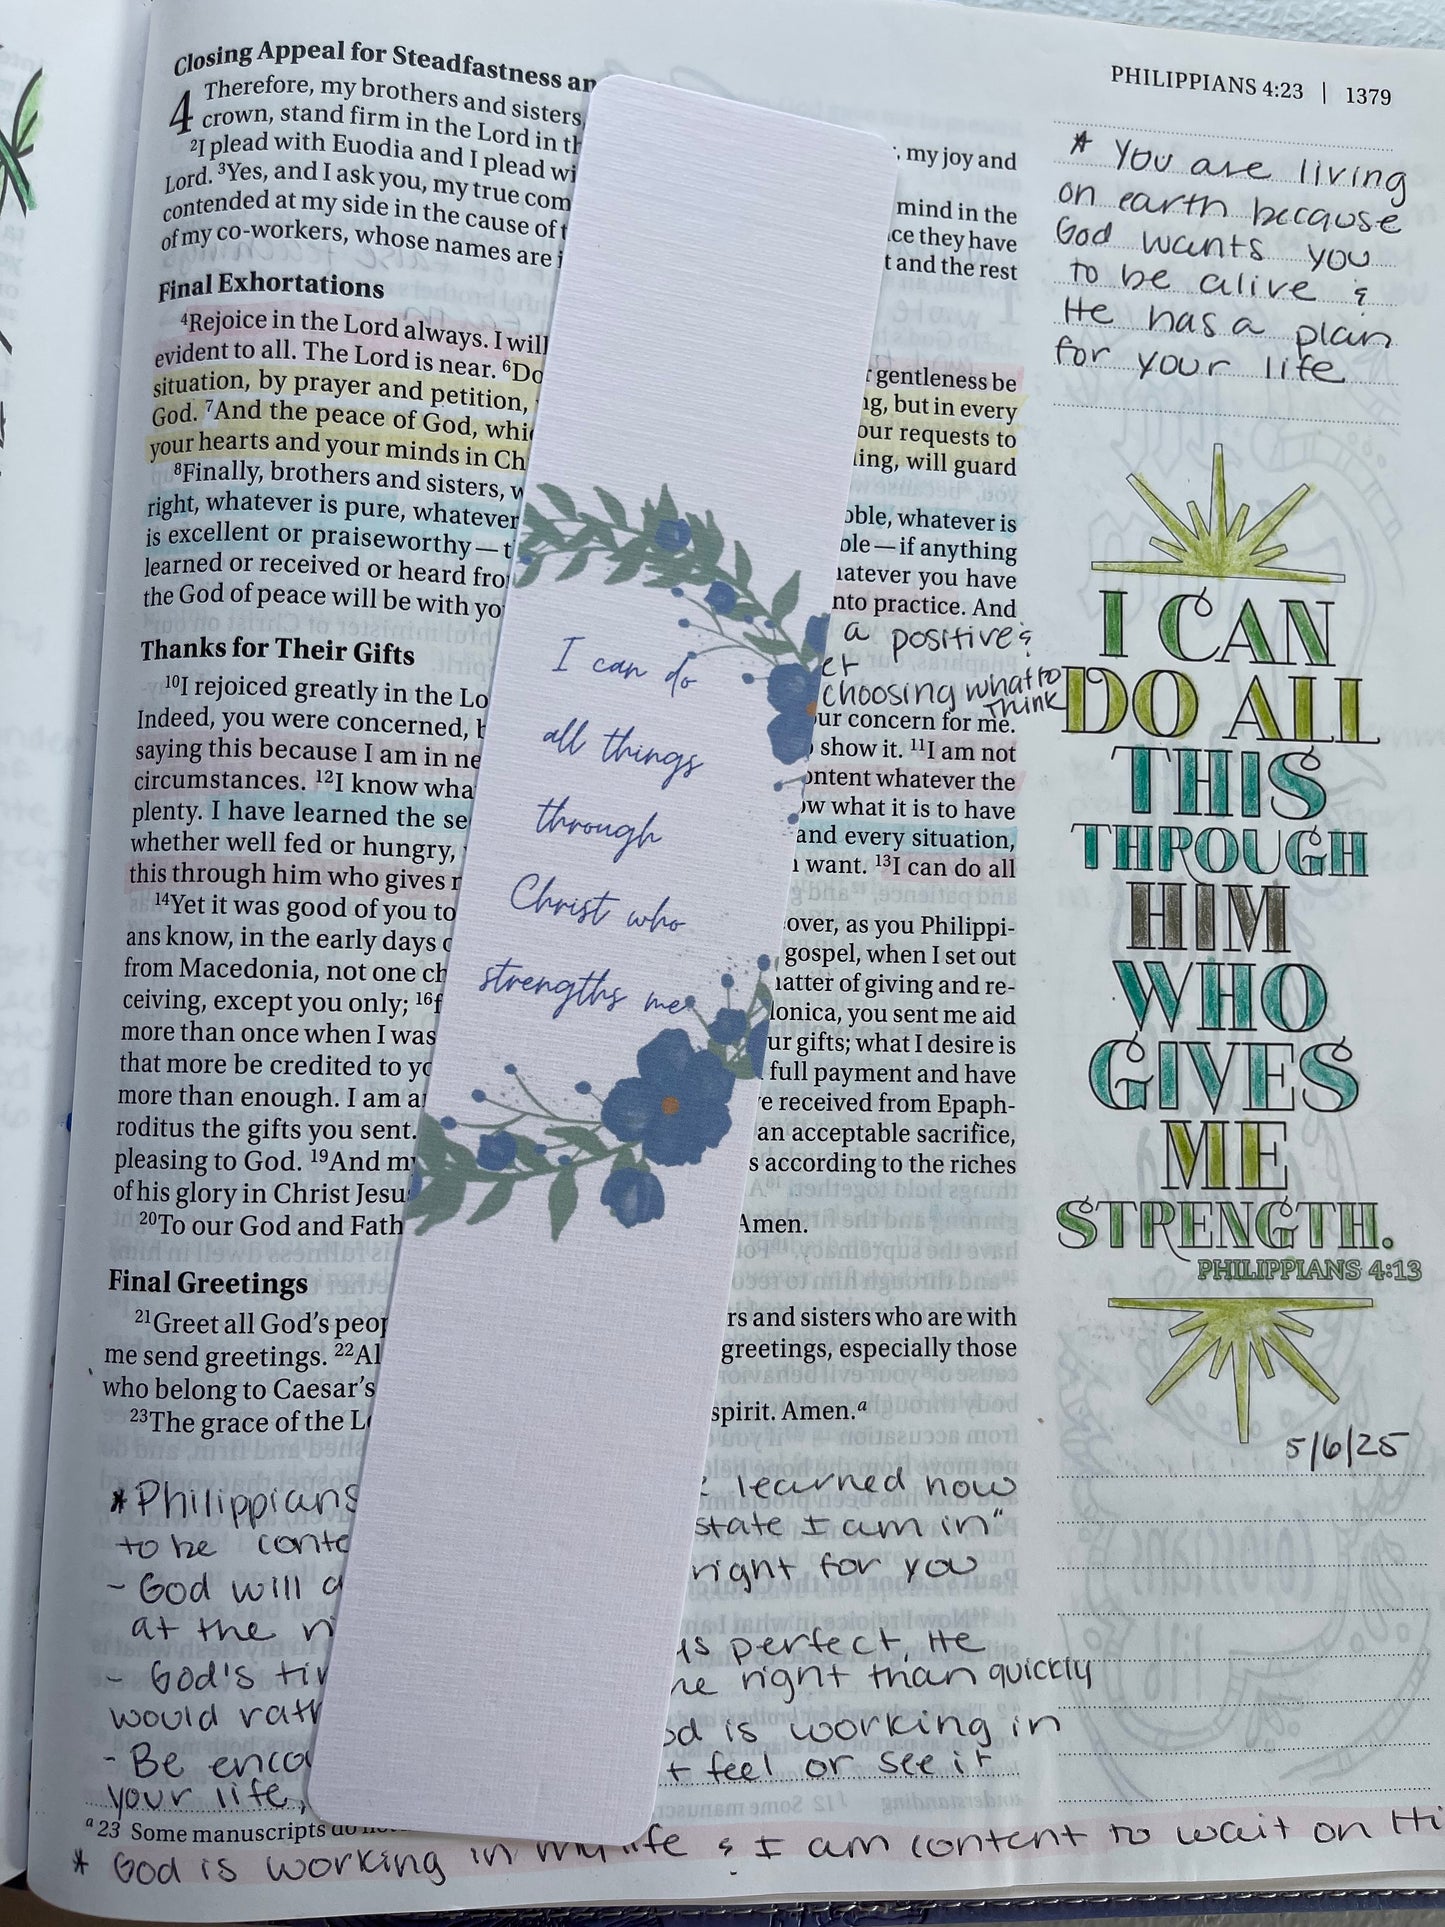 Closing Appeal for Steadfastness an
PHILIPPIANS 4:23 | 1379
4 Therefore, my brothers and sisters, my joy and
crown, stand firm in the Lord in th
²I plead with Euodia and I plead wi mind in the
Lord. ³Yes, and I ask you, my true com ce they have
contended at my side in the cause of t and the rest
of my co-workers, whose names are i
Final Exhortations
⁴Rejoice in the Lord always. I will r gentleness be
evident to all. The Lord is near. ⁶Do ng, but in every
situation, by prayer and petition, our requests to
God. ⁷And the peace of God, whic ing, will guard
your hearts and your minds in Ch
⁸Finally, brothers and sisters, w oble, whatever is
right, whatever is pure, whatever ble — if anything
is excellent or praiseworthy — t hatever you have
learned or received or heard fro nto practice. And
the God of peace will be with yo
a positive &
er
choosing what to
think
Thanks for Their Gifts
¹⁰I rejoiced greatly in the Lo ur concern for me.
Indeed, you were concerned, b show it. ¹¹I am not
saying this because I am in ne ontent whatever the
circumstances. ¹²I know wha ow what it is to have
plenty. I have learned the se and every situation,
whether well fed or hungry, want. ¹³I can do all
this through him who gives
¹⁴Yet it was good of you to over, as you Philippi-
ans know, in the early days o gospel, when I set out
from Macedonia, not one ch atter of giving and re-
ceiving, except you only; ¹⁶f lonica, you sent me aid
more than once when I was ur gifts; what I desire is
that more be credited to yo full payment and have
more than enough. I am a e received from Epaph-
roditus the gifts you sent. an acceptable sacrifice,
pleasing to God. ¹⁹And my s according to the riches
of his glory in Christ Jesu
²⁰To our God and Fath Amen.
Final Greetings
²¹Greet all God's peop rs and sisters who are with
me send greetings. ²²Al greetings, especially those
who belong to Caesar's
²³The grace of the Lo spirit. Amen.ᵃ
*Philippians learned how
to be conte state I am in"
- God will a right for you
at the ri
- God's tim is perfect, He
would rath he right than quickly
- Be enco od is working in
your life, t feel or see it
ᵃ23 Some manuscripts do
* God is working in my life & I am content to wait on Hi
I can do
all things
through
Christ who
strengths me
* You are living
on earth because
God wants you
to be alive &
He has a plan
for your life
I CAN
DO ALL
THIS
THROUGH
HIM
WHO
GIVES
ME
STRENGTH.
PHILIPPIANS 4:13
5/6/25